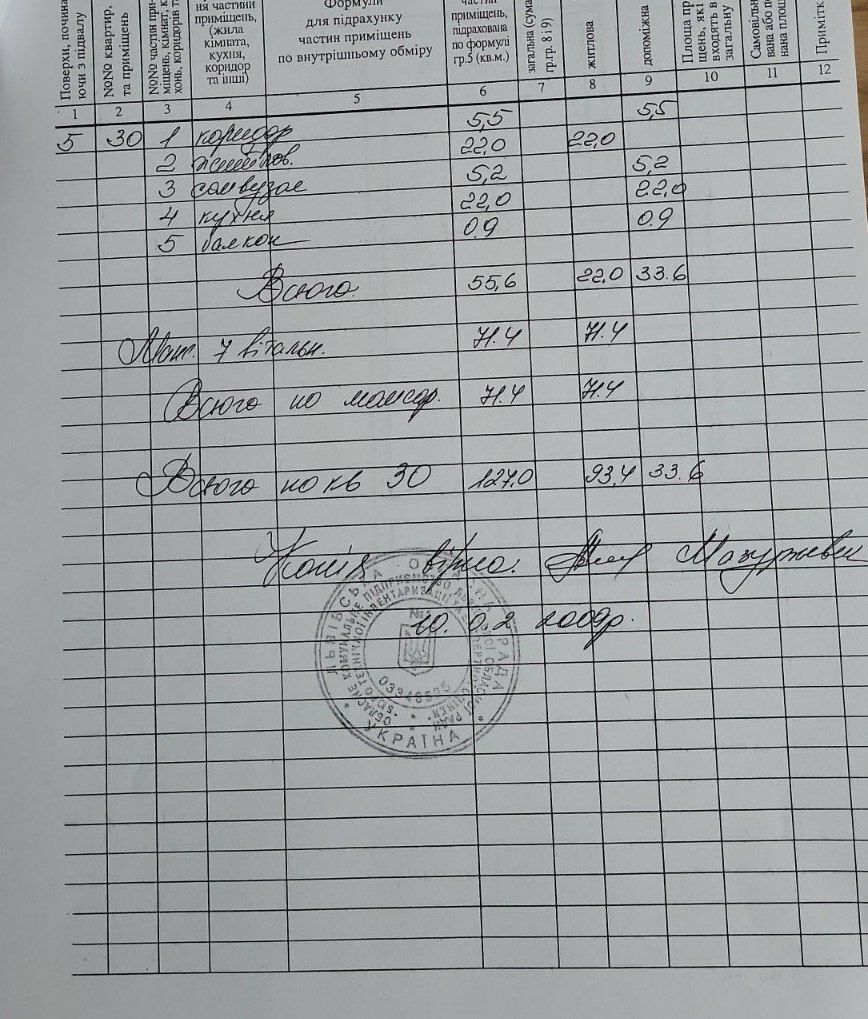 Поверхи, почина
ючи з підвалу
№№ квартир,
та приміщень
№№ частин при-
міщень, кімнат, к
хонь, коридорів та
ня частини
приміщень,
(жила
кімната,
кухня,
коридор
та інші)
Формули
для підрахунку
частин приміщень
по внутрішньому обміру
частин
приміщень,
підрахована
по формулі
гр.5 (кв.м.)
загальна (сума
гр.гр. 8 і 9)
житлова
допоміжна
Площа пр
щень, які
входять в
загальну
Самовільн
вана або пе
нана площ
Примітк
1 2 3 4 5 6 7 8 9 10 11 12
5 30 1 коридор 5,5 5,5
2 житлов. 22,0 22,0
3 санвузол 5,2 5,2
4 кухня 22,0 22,0
5 балкон 0.9 0.9
Всього. 55,6 22,0 33.6
Манс. 7 вітальн. 71.4 71.4
Всього по мансар. 71.4 71.4
Всього по кв 30 127.0 93,4 33.6
Копія вірна.
10.02 2009р.
ЛЬВІВСЬКА ОБЛАСНА РАДА
УКРАЇНА
ОБЛАСНЕ КОМУНАЛЬНЕ ПІДПРИЄМСТВО
№1